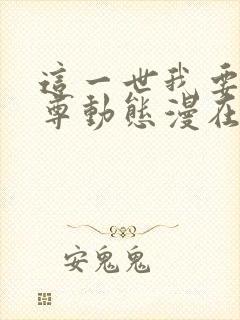 這一世我要
尊動態漫在
安鬼鬼